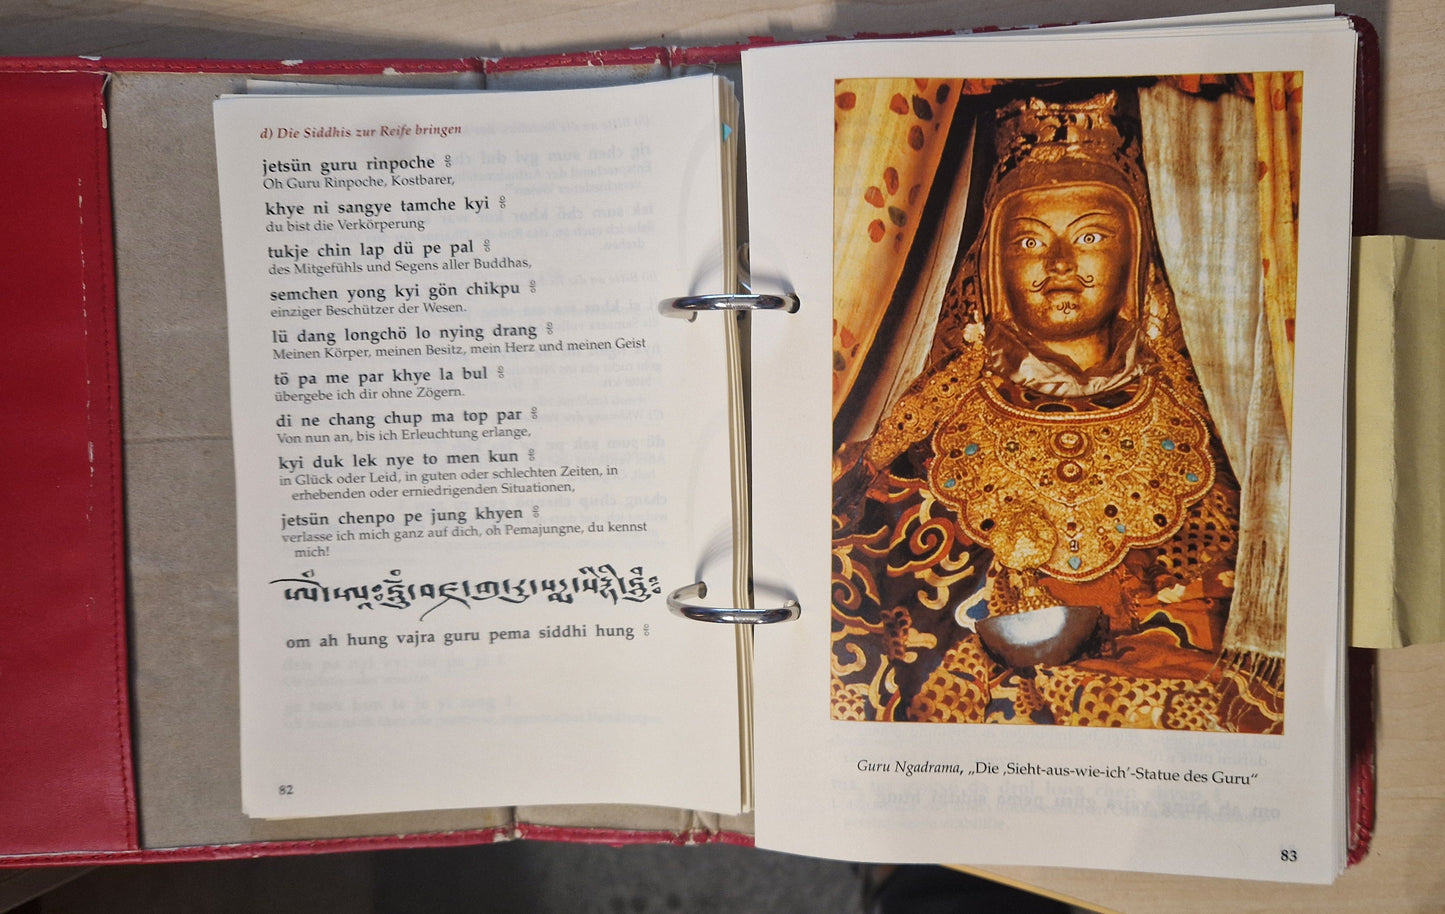 d) Die Siddhis zur Reife bringen
jetsün guru rinpoche ༔
Oh Guru Rinpoche, Kostbarer,
khye ni sangye tamche kyi ༔
du bist die Verkörperung
tukje chin lap dü pe pal ༔
des Mitgefühls und Segens aller Buddhas,
semchen yong kyi gön chikpu ༔
einziger Beschützer der Wesen.
lü dang longchö lo nying drang ༔
Meinen Körper, meinen Besitz, mein Herz und meinen Geist
tö pa me par khye la bul ༔
übergebe ich dir ohne Zögern.
di ne chang chup ma top par ༔
Von nun an, bis ich Erleuchtung erlange,
kyi duk lek nye to men kun ༔
in Glück oder Leid, in guten oder schlechten Zeiten, in
erhebenden oder erniedrigenden Situationen,
jetsün chenpo pe jung khyen ༔
verlasse ich mich ganz auf dich, oh Pemajungne, du kennst
mich!
ཨོཾ་ཨཱཿཧཱུྃ་བཛྲ་གུ་རུ་པདྨ་སིདྡྷི་ཧཱུྃ༔
om ah hung vajra guru pema siddhi hung ༔
82
Guru Ngadrama, „Die ‚Sieht-aus-wie-ich'-Statue des Guru"
83